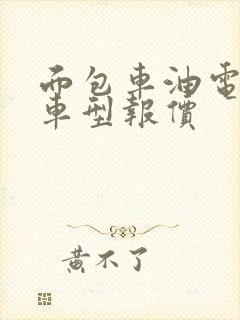 而包車油電
車型報價
黃不了